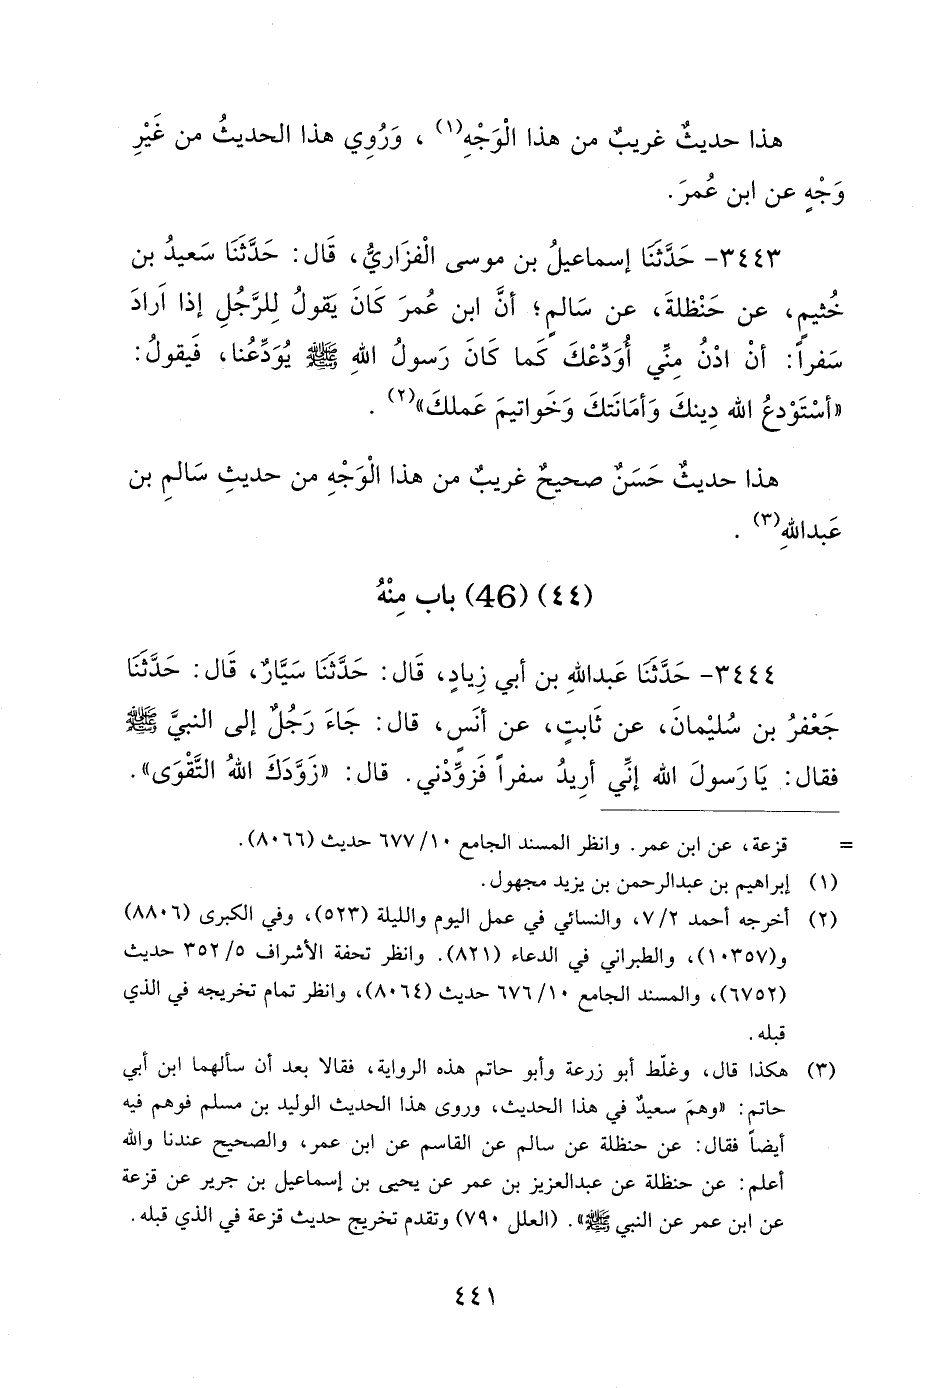 هذا حديثٌ غريبٌ من هذا الْوَجْهِ(١) ، وَرُوِي هذا الحديثُ من غَيْرِ
وَجْهٍ عن ابن عُمرَ.
٣٤٤٣- حَدَّثَنَا إسماعيلُ بن موسى الْفزَاريُّ، قَال: حَدَّثَنَا سَعيدُ بن
خُثيمٍ، عن حَنْظلةَ، عن سَالمٍ؛ أنَّ ابن عُمرَ كَانَ يَقولُ لِلرَّجُلِ إذا اَرادَ
سَفراً: أنْ ادْنُ مِنِّي أُوَدِّعْكَ كَما كَانَ رَسولُ اللهِ ﷺ يُوَدِّعُنا، فَيقولُ:
«أسْتَوْدعُ الله دِينكَ وَأمَانَتكَ وَخَواتيمَ عَملكَ»(٢) .
هذا حديثٌ حَسَنٌ صحيحٌ غريبٌ من هذا الْوَجْهِ من حديثِ سَالمِ بن
عَبداللهِ(٣) .
(٤٤) (46) باب مِنْهُ
٣٤٤٤- حَدَّثَنَا عَبداللهِ بن أبي زِيادٍ، قَال: حَدَّثَنَا سَيَّارٌ، قَال: حَدَّثَنَا
جَعْفرُ بن سُليْمانَ، عن ثَابتٍ، عن أنَسٍ، قال: جَاءَ رَجُلٌ إلى النبيِّ ﷺ
فقال: يَا رَسولَ الله إنِّي أرِيدُ سفراً فَزوِّدْني. قال: «زَوَّدَكَ اللهُ التَّقْوَى».
= قزعة، عن ابن عمر. وانظر المسند الجامع ١٠/ ٦٧٧ حديث (٨٠٦٦).
(١) إبراهيم بن عبدالرحمن بن يزيد مجهول.
(٢) أخرجه أحمد ٢/ ٧، والنسائي في عمل اليوم والليلة (٥٢٣)، وفي الكبرى (٨٨٠٦)
و(١٠٣٥٧)، والطبراني في الدعاء (٨٢١). وانظر تحفة الأشراف ٥/ ٣٥٢ حديث
(٦٧٥٢)، والمسند الجامع ١٠/ ٦٧٦ حديث (٨٠٦٤)، وانظر تمام تخريجه في الذي
قبله.
(٣) هكذا قال، وغلّط أبو زرعة وأبو حاتم هذه الرواية، فقالا بعد أن سألهما ابن أبي
حاتم: «وهمَ سعيدٌ في هذا الحديث، وروى هذا الحديث الوليد بن مسلم فوهم فيه
أيضاً فقال: عن حنظلة عن سالم عن القاسم عن ابن عمر، والصحيح عندنا والله
أعلم: عن حنظلة عن عبدالعزيز بن عمر عن يحيى بن إسماعيل بن جرير عن قزعة
عن ابن عمر عن النبي ﷺ». (العلل ٧٩٠) وتقدم تخريج حديث قزعة في الذي قبله.
٤٤١